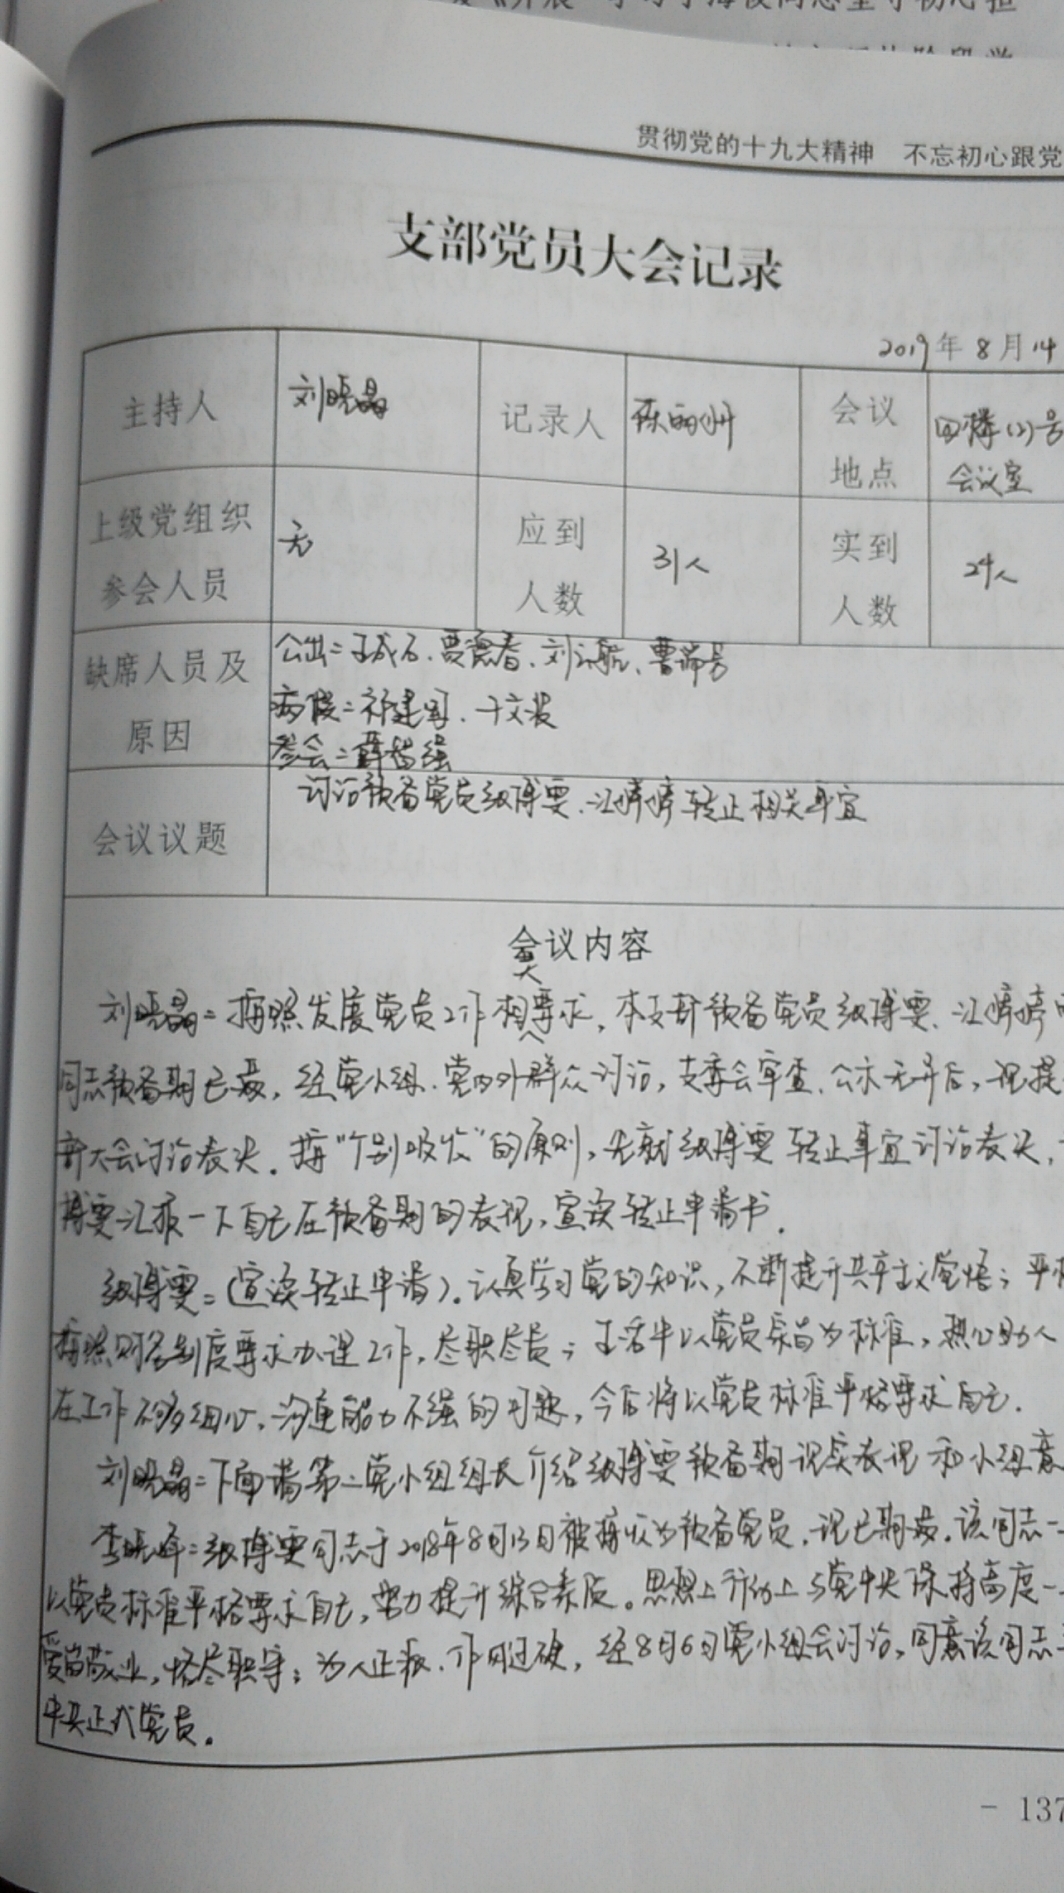 贯彻党的十九大精神 不忘初心跟党
支部党员大会记录
2019年8月14
主持人 刘晓晶 记录人 会议地点 四楼(2)号会议室
上级党组织参会人员 无 应到人数 31人 实到人数 24人
缺席人员及原因 公出:王成石、贾德春、刘海航、曹瑞芳
病假:祁建军、于文波
参会:薛哲强
会议议题 讨论预备党员 博雯、江婷婷转正相关事宜
会议内容
刘晓晶:按照发展党员工作相关要求,本支部预备党员 博雯、江婷婷两
同志预备期已满,经党小组、党内外群众讨论,支委会审查、公示无异后,现提
部大会讨论表决。按"个别吸收"的原则,先就 博雯转正事宜讨论表决,
博雯汇报一下自己在预备期的表现,宣读转正申请书。
博雯:(宣读转正申请)。认真学习党的知识,不断提升共产主义觉悟;平时
按照财务制度要求办理工作,尽职尽责;生活中以党员条件为标准,热心助人
在工作不够细心,沟通能力不强的问题,今后将以党员标准严格要求自己。
刘晓晶:下面请第二党小组组长介绍 博雯预备期现实表现和小组意
李晓峰: 博雯同志于2018年8月13日被接收为预备党员,现已期满。该同志一
以党员标准严格要求自己,努力提升综合素质。思想上行动上与党中央保持高度一
爱岗敬业,恪尽职守;为人正派、作风过硬,经8月6日党小组会讨论,同意该同志
中共正式党员。
- 137